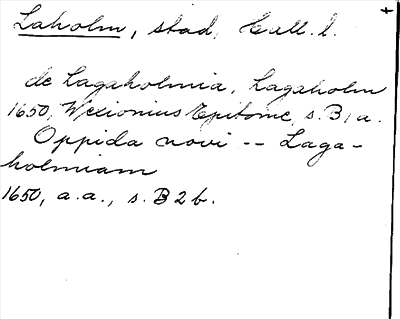 Laholm, stad, Hall. l.
de Lagaholmia, Lagaholm
1650, Wexionius Epitome, s. B 1 a.
Oppida novi -- Laga-
holmiam
1650, a.a., s. B 2 b.